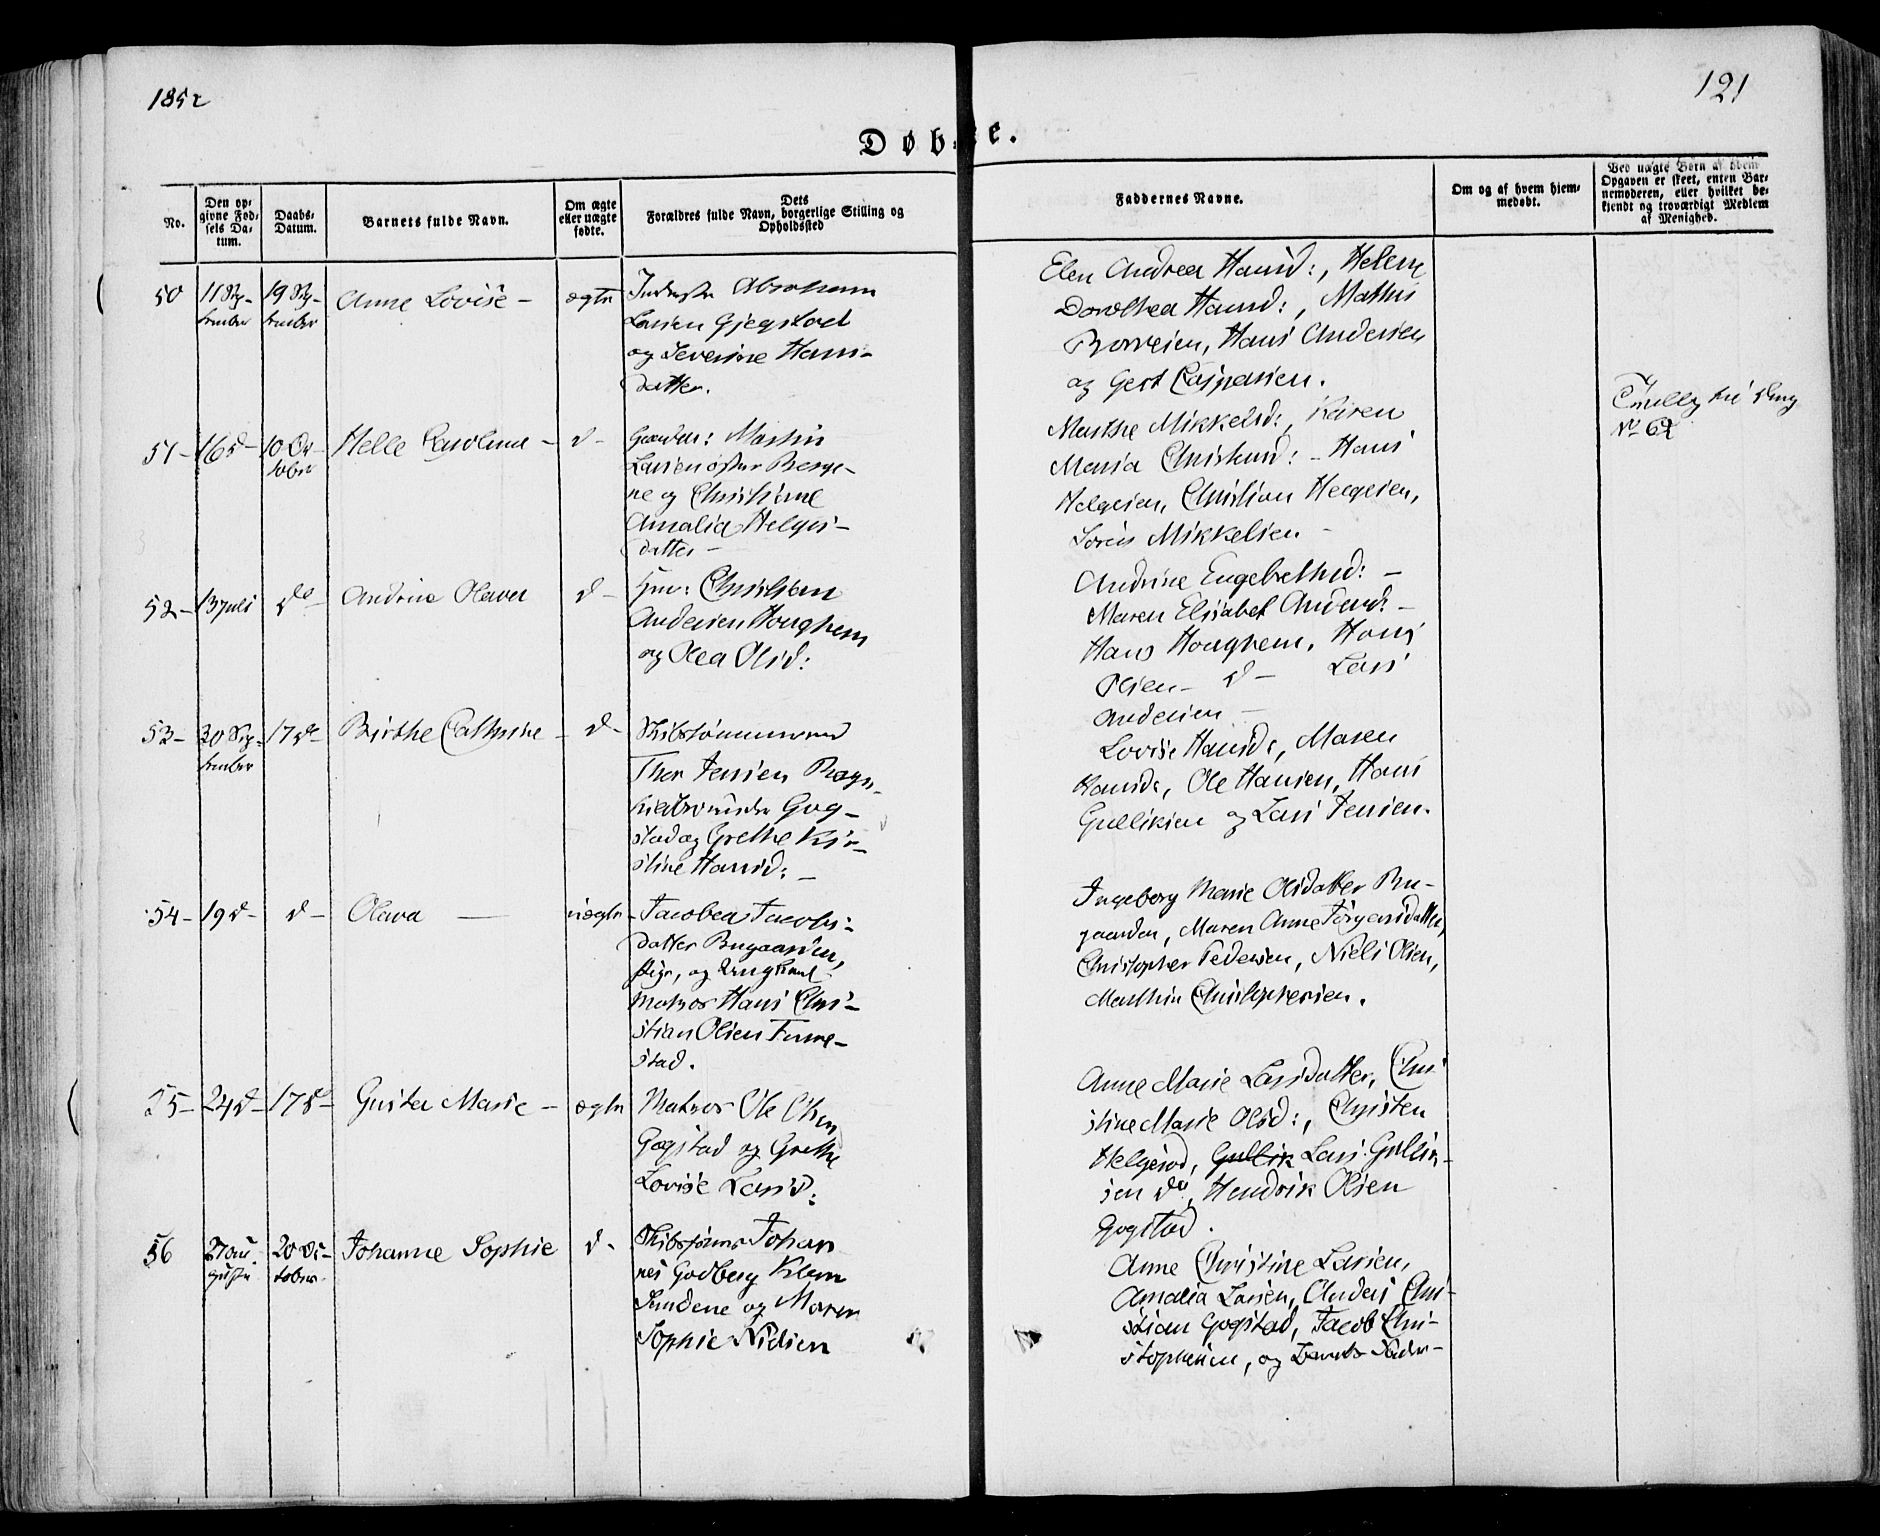 1852
121
Døbte.
No.
Den opgivne Fødsels Datum.
Daabs-Datum.
Barnets fulde Navn.
Om ægte eller uægte fødte.
Dets
Forældres fulde Navn, borgerlige Stilling og
Opholdssted
Faddernes Navne.
Om og af hvem hjemmedøbt.
Ved uægte Børn af hvem
Opgaven er skeet, enten Barnemoderen, eller hvilket bekjendt og troværdigt Medlem
af Menighed.
50
11 Sep-
tember
19 Sep-
tember
Anne Lovise –
ægte
Abraham
Larsen Gjegstad
og Severine Hans-
datter.
Elen Andrea Hansd:, Helene
Dorothea Hansd:, Mathis
Borresen, Hans Andersen
og Gert Caspersen.
51 –
16 d –
10 Oc-
tober
Helle Carolina –
d –
Gaardm: Martin
Larsen østre Berge-
ne og Christiane
Amalia Helges-
datter –
Marthe Mikkelsd:, Karen
Maria Christensd: – Hans
Helgesen, Christian Helgesen,
Søren Mikkelsen –
No 62
52 –
13 Juli
do –
Andrine Olava
d –
Huu: Christian
Andersen Houghem
og Olea Olsd:
Andrine Engebrethsd: –
Maren Elisabet Andersd: –
Hans Houghem, Hans
Olsen – d – Lars
Andersen –
53 –
30 Sep-
tember
17 do
Birthe Cathrine –
d –
Skibstømmermand
Thor Jensen
Gog-
stad og Grethe Kir-
stine Hansd: –
Lovise Hansd:, Maren
Hansd:, Ole Hansen, Hans
Gulliksen og Lars Jensen.
54 –
19 d –
d –
Olava –
uægte
Jacobea Jacobs-
datter Bugaarden,
Pige, og Ungkarl
Matros Hans Chri-
stian Olsen Ture-
stad.
Ingeborg Marie Olsdatter Bu-
gaarden, Maren Anne Jørgensdatter,
Christopher Pedersen, Niels Olsen,
Marthin Christophersen.
55 –
24 d –
17 do –
Gusta Marie –
ægte
Matros Ole Olsen
Gogstad og Grethe
Lovise Larsd:
Anne Marie Larsdatter, Chri-
stine Marie Olsd:, Christen
Helgerød, Gullik Lars Gullik-
sen do, Hendrik Olsen
Gogstad.
56
27 Au-
gusti
20 Oc-
tober
Johanne Sophie
d –
Skibstømr Johan-
nes Godberg Klem
Sundene og Maren
Sophie Nilsen
Anne Christine Larsen,
Amalia Larsen, Anders Chri-
stian Gogstad, Jacob Chri-
stophersen, og